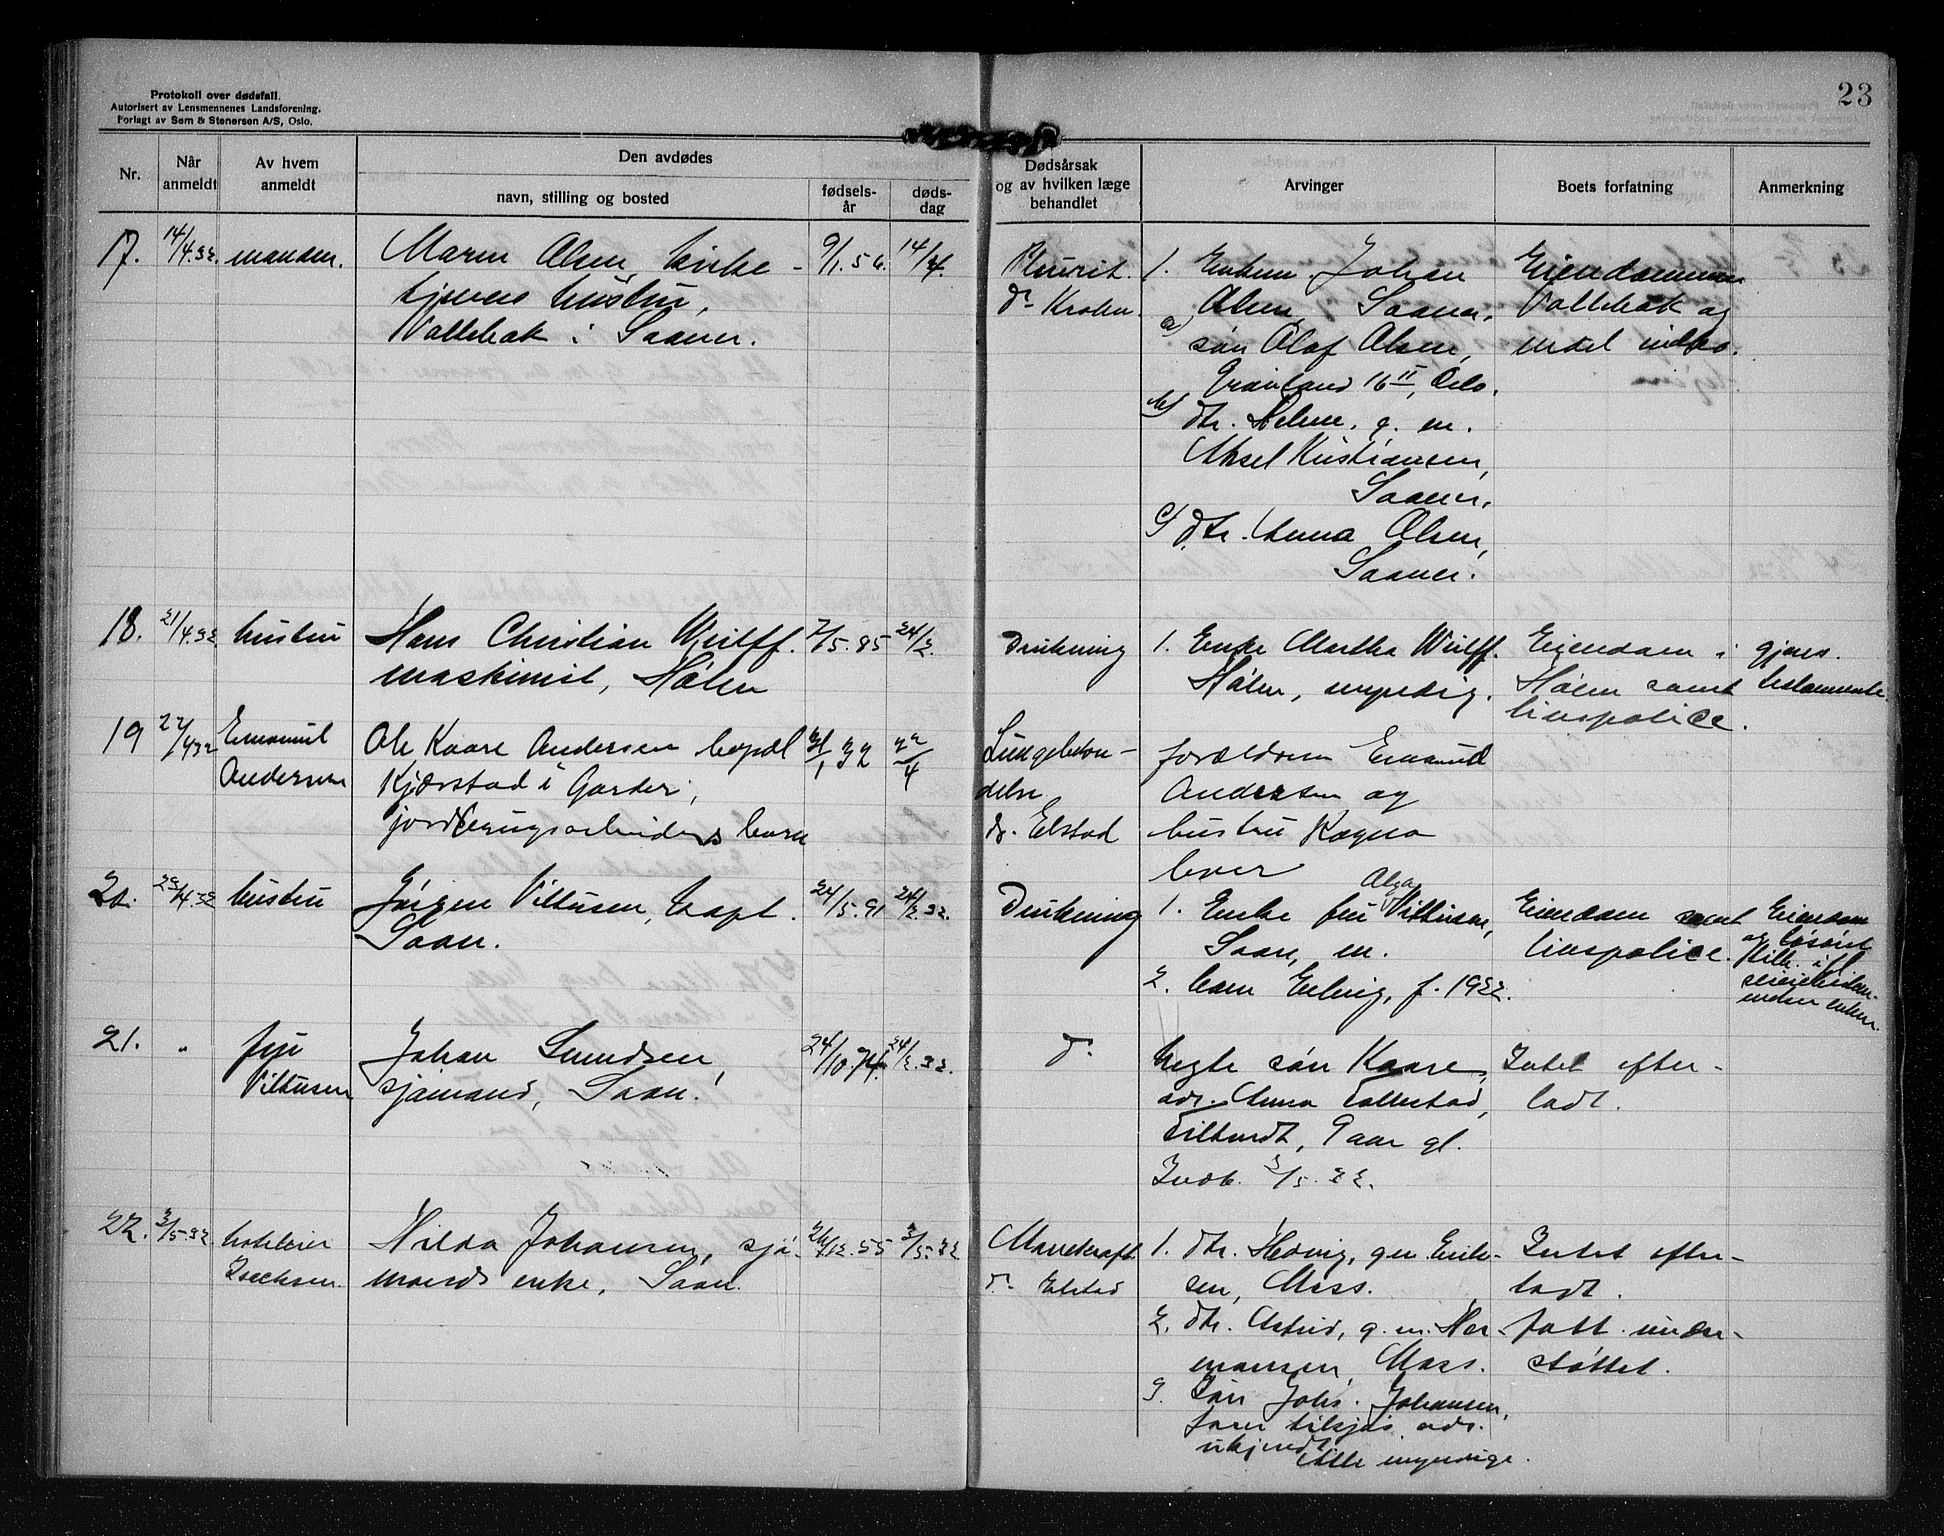 Protokoll over dødsfall.
Autorisert av Lensmennenes Landsforening.
Forlagt av Sem & Stenersen A/S, Oslo.
23
Nr.
Når anmeldt
Av hvem anmeldt
Den avdødes
navn, stilling og bosted
fødsels-år
døds-dag
Dødsårsak og av hvilken læge behandlet
Arvinger
Boets forfatning
Anmerkning
17.
14/4.32
manden.
Maren Olsen, kirke-
tjeners hustru,
Vallebak i Saaner.
9/1.56.
14/4
Pleurit.
dr Krohn.
1. Enkem. Johan
Olsen, Saaner.
a) søn Olaf Olsen,
Grønland 16 II, Oslo.
b) dtr. Helene, g. m.
Aksel Kristiansen,
Saaner.
c) dtr. Anna Olsen,
Saaner.
Eiendommen
Vallebak og
endel indbo.
18.
21/4.32
hustru
Hans Christian Wulff.
maskinist, Hølen
7/5.85
24/2.
Drukning
1. Enke Martha Wulff.
Hølen, myndig.
Eiendom i
Hølen samt
livspolice.
gjens.
testamente
19
27/4 32
Emanuel
Andersen
Ole Kaare Andersen bopæl
Kjærstad i Garder,
jordbrugsarbeiders barn
31/1 32
22/4
Lungebeten-
delse
dr. Elstad
forældrene Emanuel
Andersen og
hustru Ragna
lever
20.
29/4.32
hustru
Jørgen Viltusen, kapt.
Saan.
24/5.91
24/2.32.
Drukning
1. Enke fru Olga Viltusen,
Saan, m.
2. barn Erling, f. 1922.
Eiendom samt
livspolice.
Eiendom
og løsøre
tilh. ifl.
enken.
21.
"
fru
Viltusen
Johan Svendsen,
sjømand, Saan.
24/10.74.
24/2.32.
do
uegte søn Kaare,
adr. Anna Tollerstad,
Filtvedt, 9 aar gl.
Indb. 3/5.32.
Intet efter-
ladt.
22.
3/5.32
hoteleier
Isachsen.
Hilda Johansen, sjø-
mands enke, Saan.
26/12.55
3/5.32
Mavekræft
dr Elstad
1. dtr. Hedvig, gm Erik-
sen, Moss.
2. dtr. Astrid, g. m. Her-
mansen, Moss.
3. Søn Johs. Johansen,
farer tilsjøs, adr.
ukjendt.
Alle myndige.
Intet efter-
ladt.
fatt. under-
støttet.